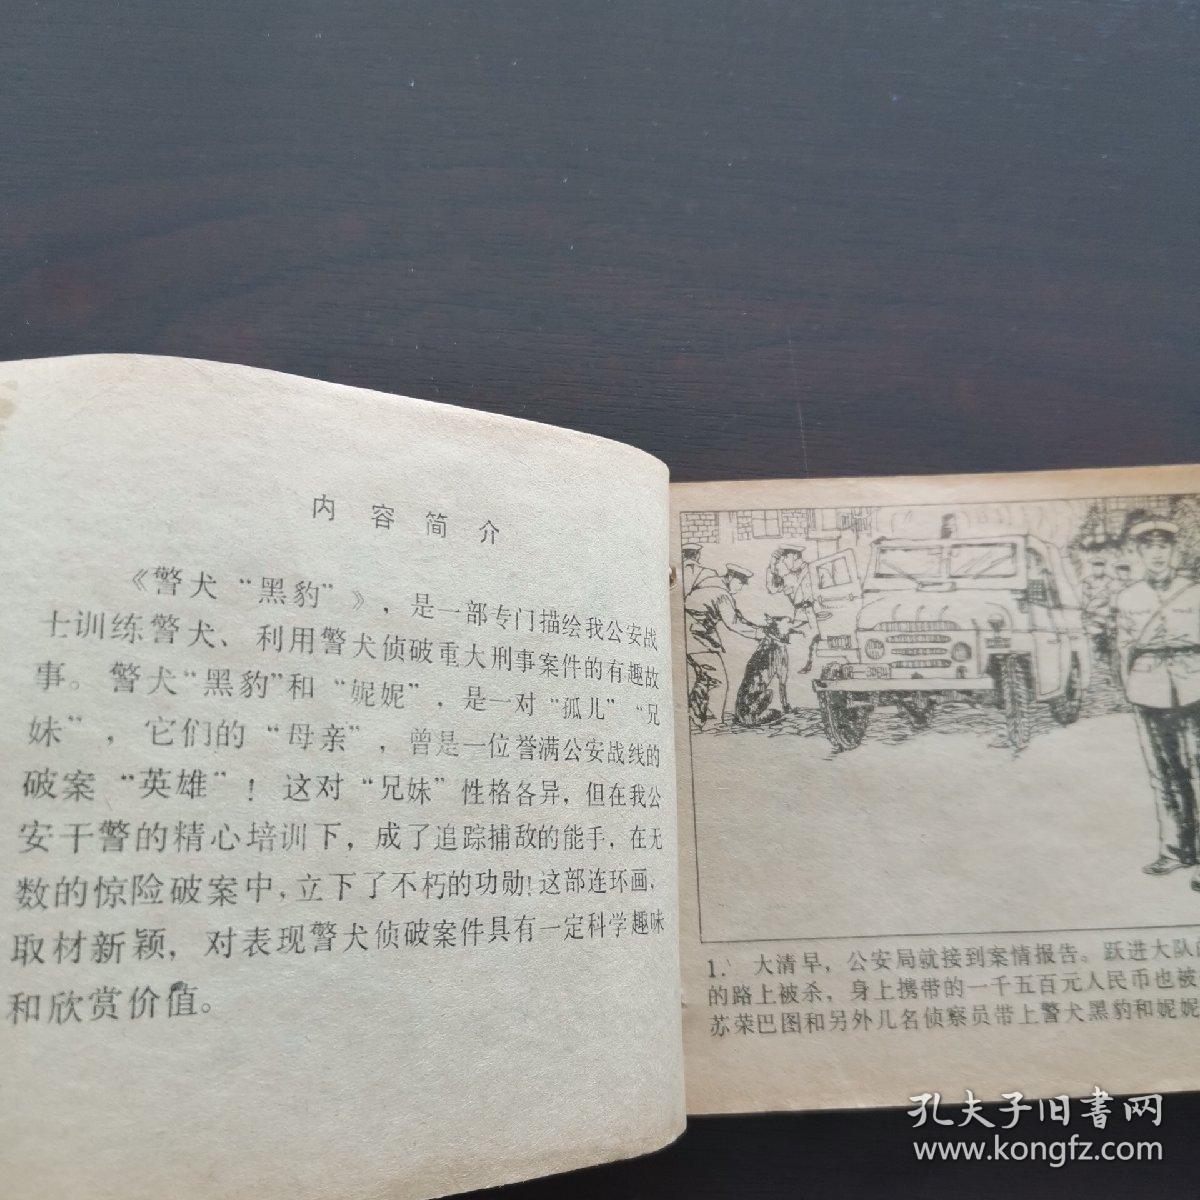 内容简介
《警犬“黑豹”》，是一部专门描绘我公安战
士训练警犬、利用警犬侦破重大刑事案件的有趣故
事。警犬“黑豹”和“妮妮”，是一对“孤儿”“兄
妹”，它们的“母亲”，曾是一位誉满公安战线的
破案“英雄”！这对“兄妹”性格各异，但在我公
安干警的精心培训下，成了追踪捕敌的能手，在无
数的惊险破案中，立下了不朽的功勋！这部连环画，
取材新颖，对表现警犬侦破案件具有一定科学趣味
和欣赏价值。
1. 大清早，公安局就接到案情报告。跃进大队
的路上被杀，身上携带的一千五百元人民币也被
苏荣巴图和另外几名侦察员带上警犬黑豹和妮妮
孔夫子旧书网
www.kongfz.com